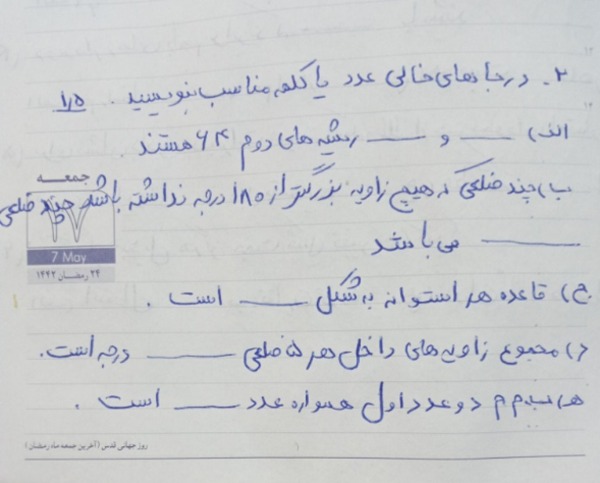 ۲- در جاهای خالی عدد یا کلمه مناسب بنویسید. ۱/۵
الف) ــــ و ــــ ریشه های دوم ۶۴ هستند.
جمعه
ب) چند ضلعی که هیچ زاویه بزرگتر از ۱۸۰ درجه نداشته باشد چند ضلعی
۱۷
ــــ می باشد
7 May
۲۴ رمضان ۱۴۴۲
ج) قاعده هر استوانه به شکل ــــ است.
د) مجموع زاویه های داخلی هر ۵ ضلعی ــــ درجه است.
ه) ب م م دو عدد اول همواره عدد ــــ است.
روز جهانی قدس (آخرین جمعه ماه رمضان)